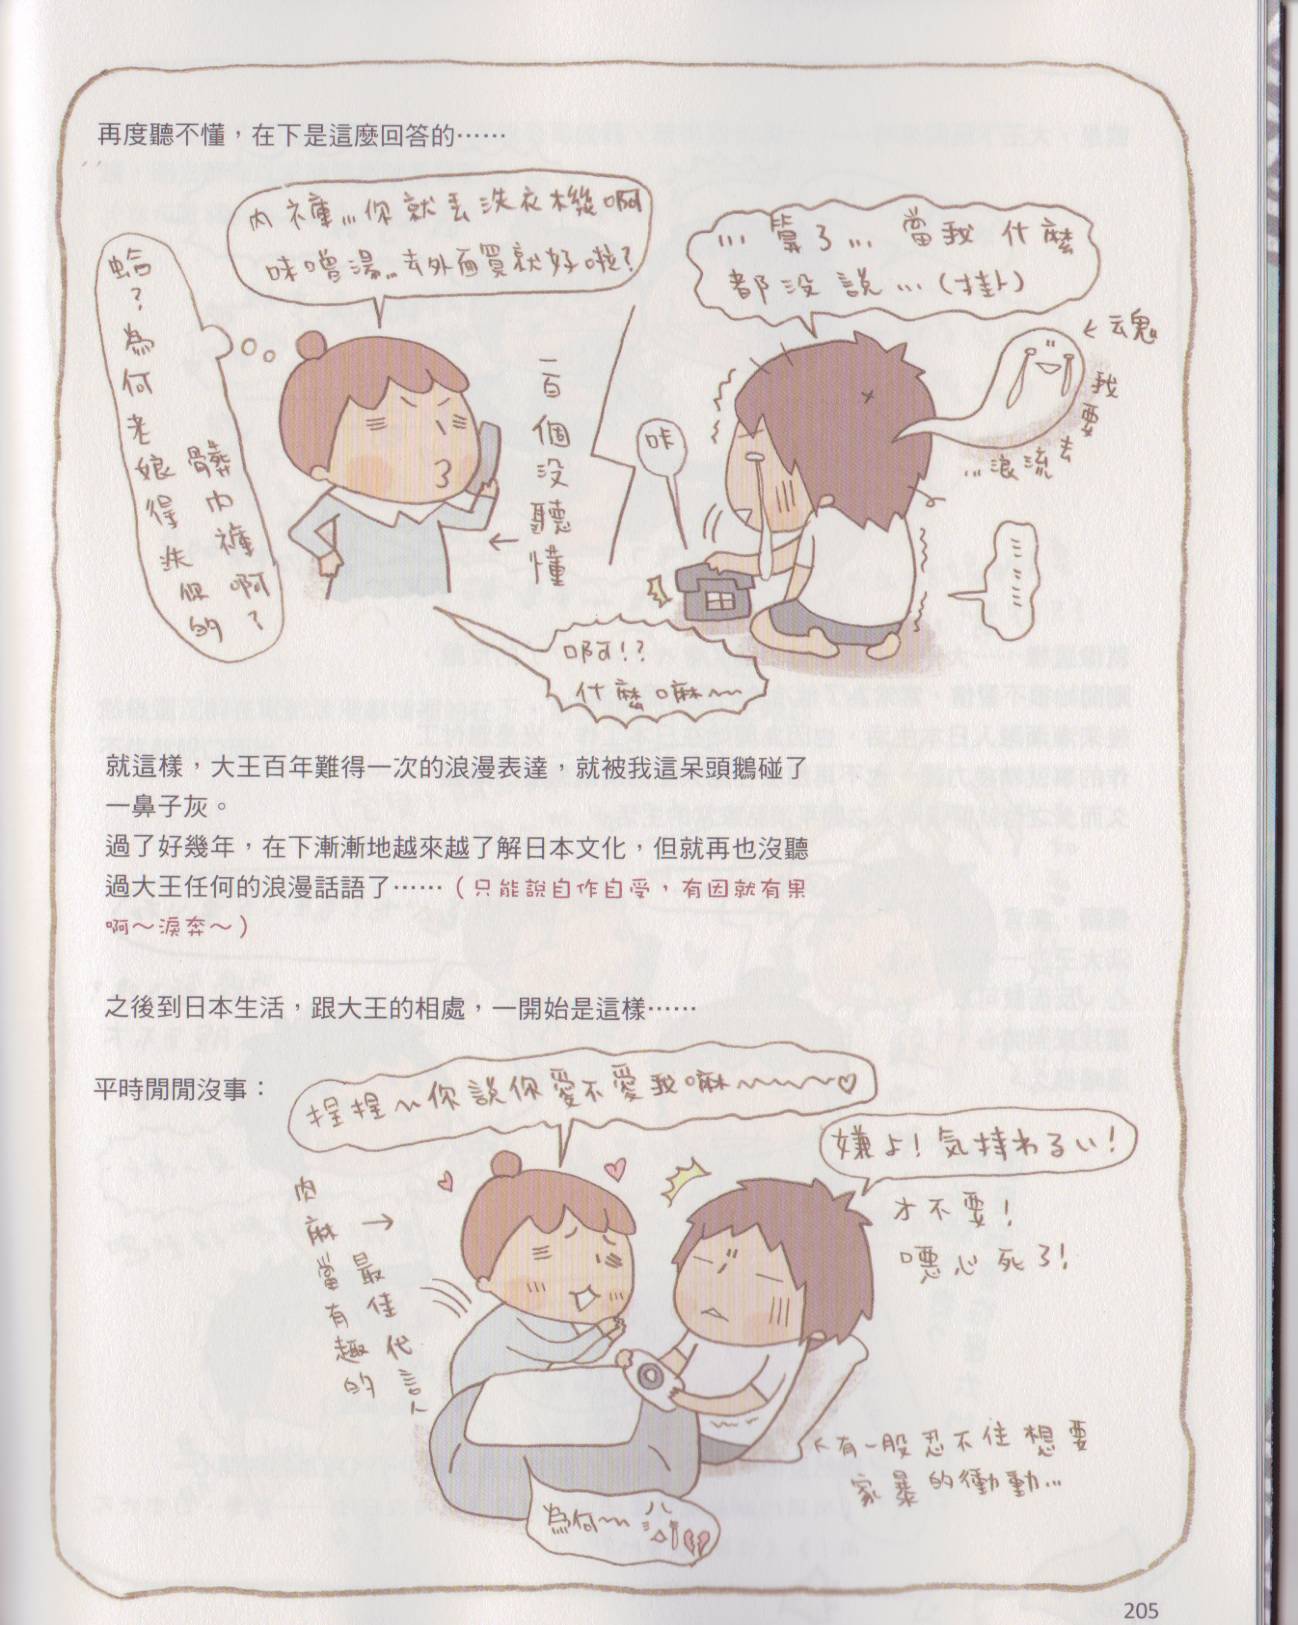 再度聽不懂，在下是這麼回答的……
內褲…你就丟洗衣機啊
味噌湯…去外面買就好啦？
蛤？為何老娘得洗你的
髒內褲啊？
一百個沒聽懂
…算了…當我什麼
都沒說…(掛)
←魂
我要去
流浪…
咔
啊!?
什麼嘛～～
就這樣，大王百年難得一次的浪漫表達，就被我這呆頭鵝碰了
一鼻子灰。
過了好幾年，在下漸漸地越來越了解日本文化，但就再也沒聽
過大王任何的浪漫話語了……（只能說自作自受，有因就有果
啊～淚奔～）
之後到日本生活，跟大王的相處，一開始是這樣……
平時閒閒沒事：
捏捏～你說你愛不愛我嘛～～～～♡
嫌よ！気持わるい！
才不要！
噁心死了！
肉麻當有趣的
最佳代言人
<有一股忍不住想要
家暴的衝動…
為何～
205